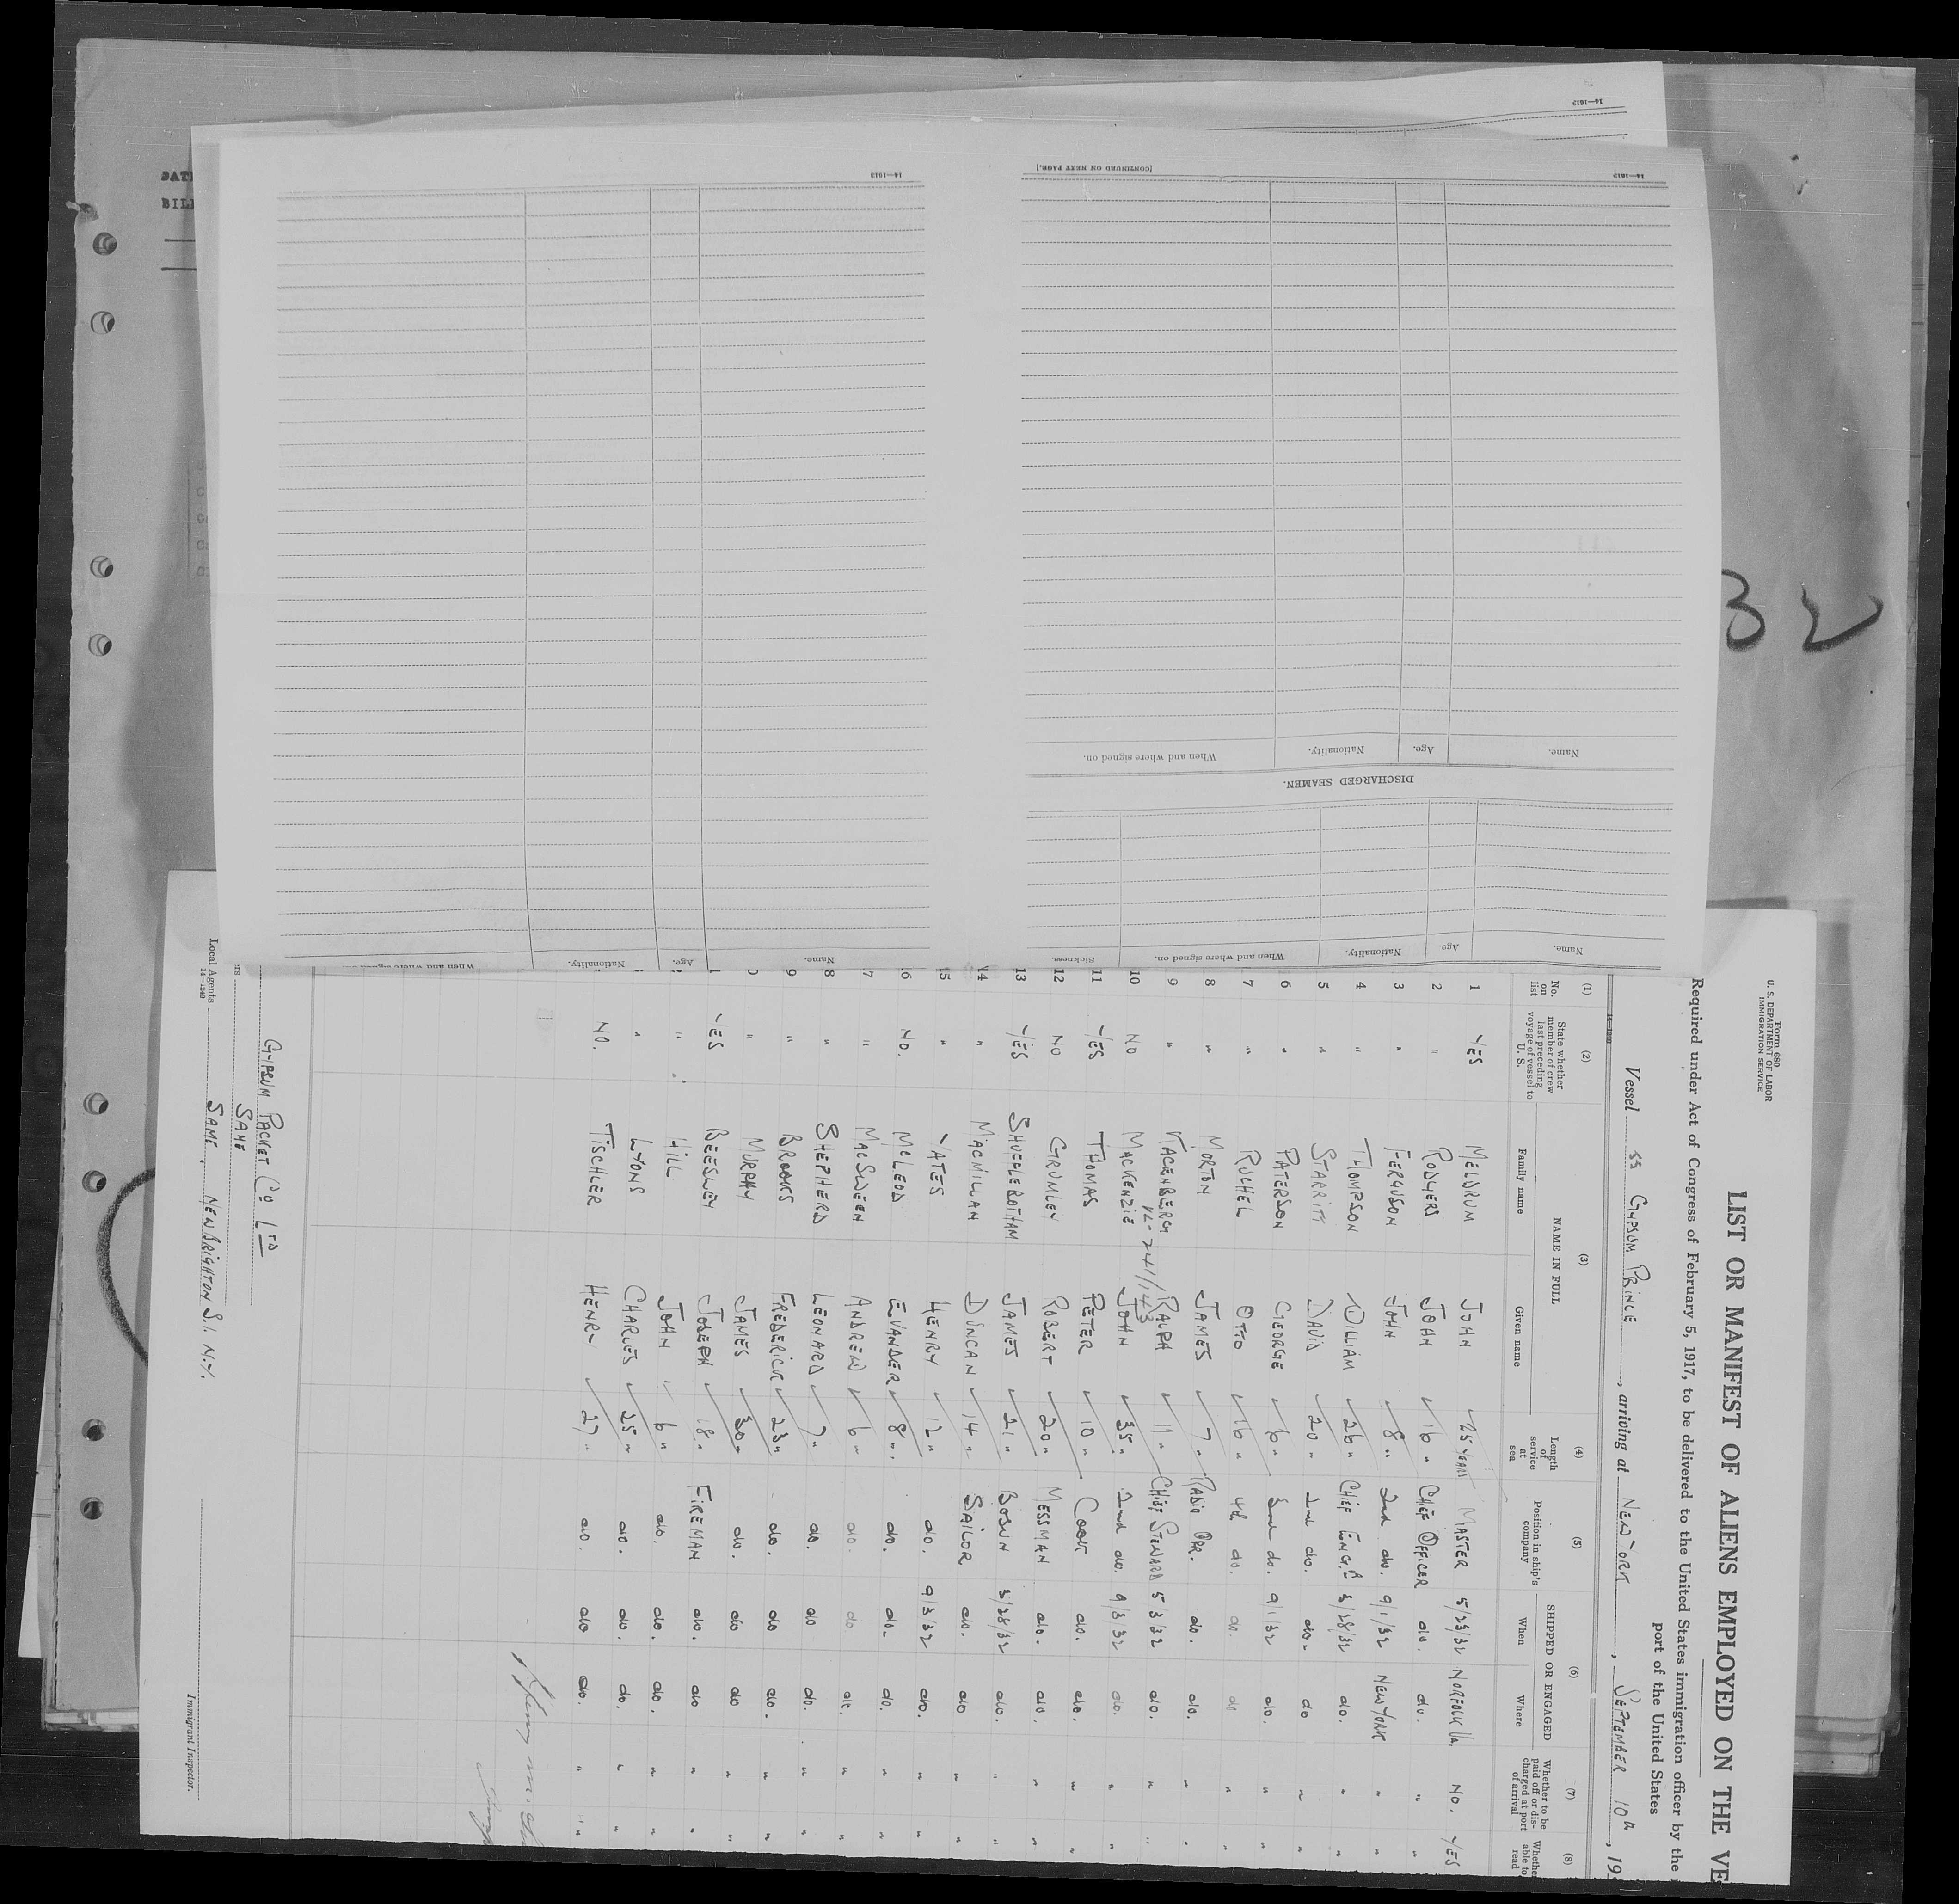 Form 680
U. S. DEPARTMENT OF LABOR
IMMIGRATION SERVICE
LIST OR MANIFEST OF ALIENS EMPLOYED ON THE VE
Required under Act of Congress of February 5, 1917, to be delivered to the United States immigration officer by the
port of the United States
Vessel SS GYPSUM PRINCE, arriving at NEW YORK, SEPTEMBER 10th, 19
(1) (2) (3) (4) (5) (6) (7) (8)
No. on list State whether member of crew last preceding voyage of vessel to U. S. NAME IN FULL Family name Given name Length of service at sea Position in ship's company SHIPPED OR ENGAGED When Where Whether to be paid off or discharged at port of arrival Whether able to read
1 YES MELDRUM JOHN 25 YEARS MASTER 5/23/32 NORFOLK VA. NO. YES
2 " RODGERS JOHN 16 " CHIEF OFFICER do. do. " "
3 " FERGUSON JOHN 8 " 2nd do. 9/1/32 NEW YORK " "
4 " THOMPSON WILLIAM 26 " CHIEF ENG. 3/28/32 do. " "
5 " STARRITT DAVID 20 " 2nd do. do. do " "
6 " PATERSON GEORGE " do. 9/1/32 do. " "
7 " RUCHEL OTTO 16 " do. do. do " "
8 " MORTON JAMES 7 " RADIO OPR. do. do. " "
9 " RALPH 11 " CHIEF STEWARD 5/3/32 do. " "
10 NO MACKENZIE JOHN 35 " 2nd do. 9/3/32 do. " "
11 YES THOMAS PETER 10 " COOK do. do. " "
12 NO GRUMLEY ROBERT 20 " MESSMAN do. do. " "
13 YES SHUFFLEBOTHAM JAMES 21 " BOSUN 3/28/32 do. " "
14 " MACMILLAN DUNCAN 14 " SAILOR do. do " "
15 " YATES HENRY 12 " do. 9/3/32 do. " "
6 NO. MCLEOD EVANDER 8 " do. do. do. " "
7 " MACSWEEN ANDREW 6 " do. do do. " "
8 " SHEPHERD LEONARD 7 " do. do do. " "
9 " BROOKS FREDERICK 23 " do. do do. " "
0 " MURPHY JAMES 30 " do. do do " "
1 YES BEESLEY JOSEPH 18 " FIREMAN do. do " "
" HILL JOHN 6 " do. do. do. " "
" LYONS CHARLES 25 " do. do. do. " "
NO. TISCHLER HENRY 27 " do. do do. " "
GYPSUM PACKET CO LTD
SAME
Local Agents SAME, NEW BRIGHTON S.I. N.Y.
Immigrant Inspector.
14—1240
Name. Age. Nationality. When and where signed on. Sickness.
DISCHARGED SEAMEN.
Name. Age. Nationality. When and where signed on.
14—1612 [CONTINUED ON NEXT PAGE.]
Name. Age. Nationality. When and where signed on.
14—1613
14—1612
DATE
BILL